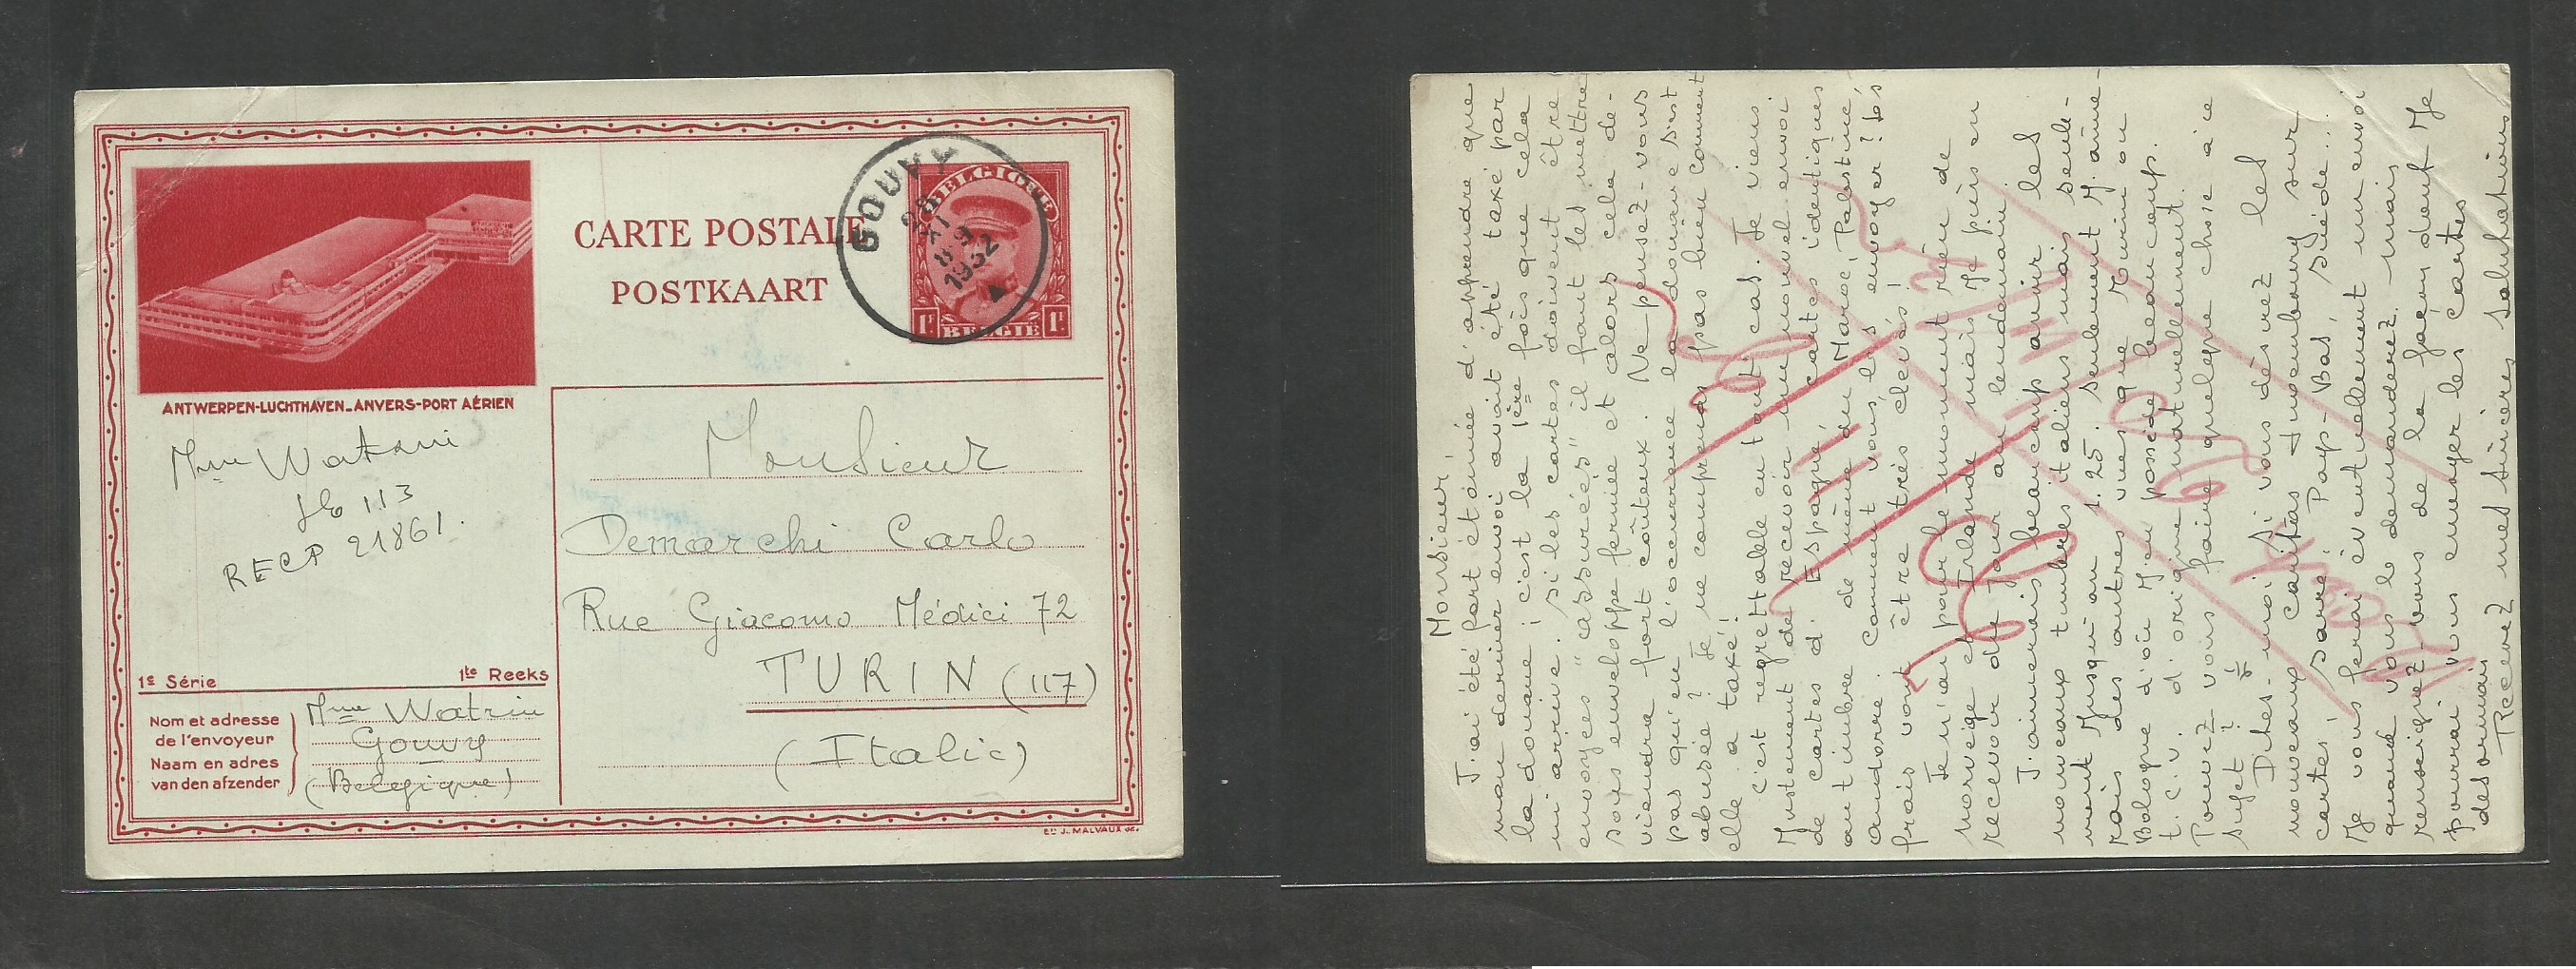 CARTE POSTALE
POSTKAART
GOUVY
28
XI
8-9
1932
BELGIQUE
1F 1F
BELGIË
ANTWERPEN-LUCHTHAVEN_ANVERS-PORT AÉRIEN
Mme
113
RECP 21861.
1e Série 1te Reeks
Nom et adresse
de l'envoyeur
Naam en adres
van den afzender
Mme Watrin
Gouvy
(Belgique)
Monsieur
Demarchi Carlo
Rue Giacomo Médici 72
TURIN (117)
(Italie)
Ets J. MALVAUX
Monsieur,
J'ai été fort étonnée d'apprendre que
mon dernier envoi avait été taxé par
la douane ; c'est la 1ère fois que cela
m'arrive. Si les cartes doivent être
envoyées "assurées" il faut les mettre
sous enveloppe fermée et alors cela de-
viendra fort coûteux. Ne pensez-vous
pas qu'en l'occurence la douane s'est
abusée ? Je ne comprends pas bien comment
elle a taxé !
C'est regrettable en tout cas. Je viens
justement de recevoir un nouvel envoi
de cartes d'Espagne, cartes identiques
au timbre de même du Maroc, Palestine,
Andorre. Comment vous les envoyer ? Les
frais vont être très élevés !
Je n'ai pour le moment rien de
Norvège et Irlande mais je puis en
recevoir du jour au lendemain.
J'aimerais beaucoup avoir les
nouveaux timbres italiens mais seule-
ment jusqu'au 1.25. Seulement j'aime-
rais des autres vues que Turin ou
Bologne d'où j'en possède beaucoup.
t.c.v. d'origine naturellement.
Pouvez-vous faire quelque chose à ce
sujet ?
Dites-moi si vous désirez les
nouveaux Caritas Luxembourg sur
cartes, Sarre, Pays-Bas, Suède...
Je vous ferai éventuellement un envoi
quand vous le demanderez. mais
renseignez-vous de la façon dont je
pourrai vous envoyer les cartes
désormais.
Recevez mes sincères salutations